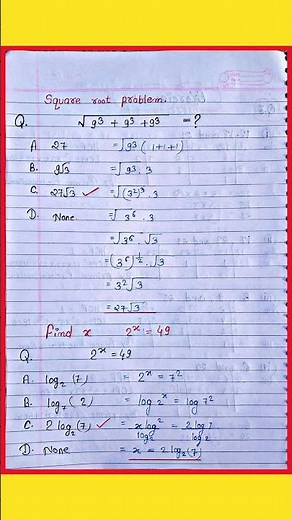 Square root problem.
Q. √9³ + 9³ + 9³ = ?
A. 27 = √9³ (1+1+1)
B. 9√3 = √9³ · 3
C. 27√3 ✓ = √(3²)³ · 3
D. None = √3⁶ · 3
= √3⁶ √3
= (3⁶)^½ · √3
= 3²√3
= 27√3
Find x 2ˣ = 49
Q. 2ˣ = 49
A. log₂(7) = 2ˣ = 7²
B. log₇(2) = log 2ˣ = log 7²
C. 2 log₂(7) ✓ = x log 2 / log 2 = 2 log 7 / log 2
D. None = x = 2 log₂(7)